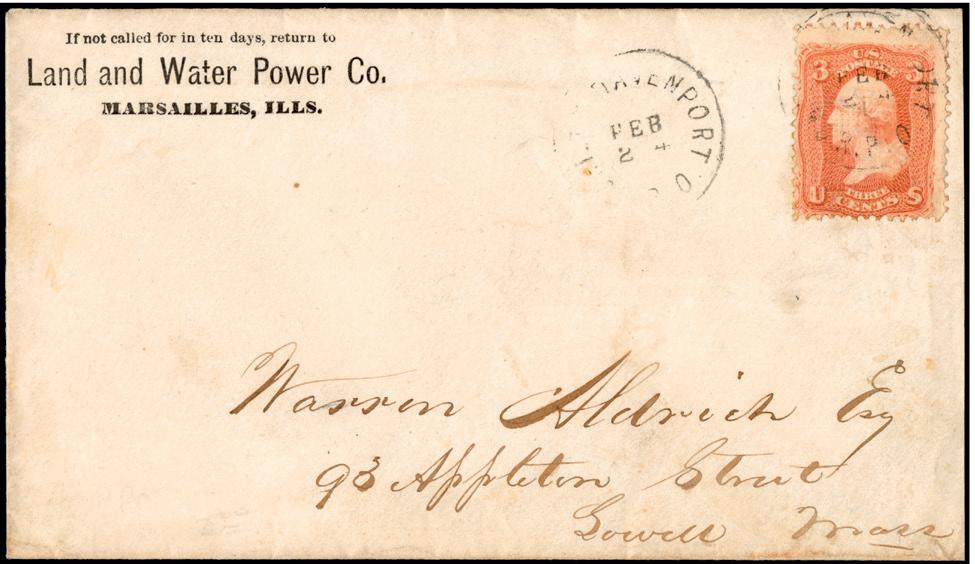 If not called for in ten days, return to
Land and Water Power Co.
MARSAILLES, ILLS.
DAVENPORT
FEB
24
U.S.
POSTAGE
3 3
FEB
U THREE S
CENTS
Warren Aldrich Esq
93 Appleton Street
Lowell Mass